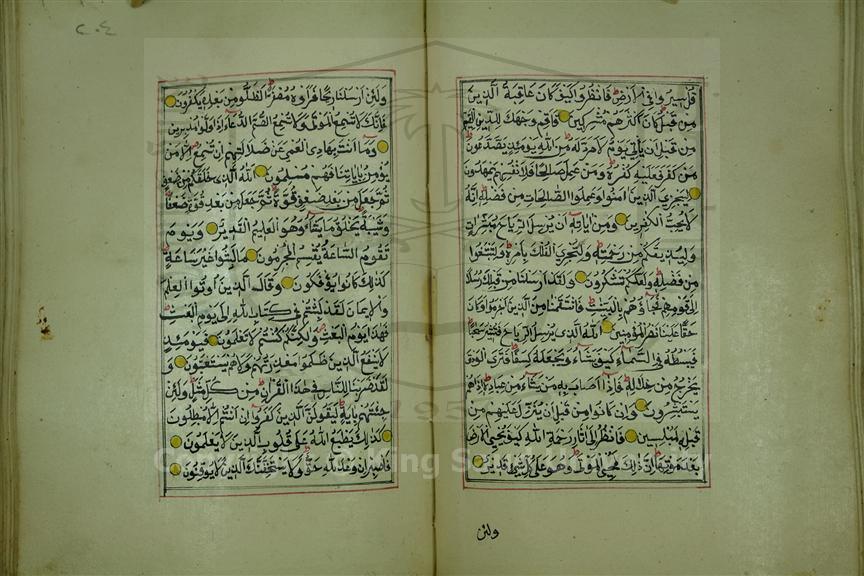 قل سيروا في الارض فانظروا كيف كان عاقبة الذين
من قبل كان اكثرهم مشركين فاقم وجهك للدين القيم
من قبل ان ياتي يوم لا مرد له من الله يومئذ يصدعون
من كفر فعليه كفره ومن عمل صالحا فلانفسهم يمهدون
ليجزي الذين امنوا وعملوا الصالحات من فضله انه
لا يحب الكفرين ومن اياته ان يرسل الرياح مبشرات
وليذيقكم من رحمته ولتجري الفلك بامره ولتبتغوا
من فضله ولعلكم تشكرون ولقد ارسلنا من قبلك رسلا
الى قومهم فجاؤهم بالبينت فانتقمنا من الذين اجرموا وكان
حقا علينا نصر المؤمنين الله الذي يرسل الرياح فتثير سحابا
فيبسطه في السماء كيف يشاء ويجعله كسفا فترى الودق
يخرج من خلاله فاذا اصاب به من يشاء من عباده اذا هم
يستبشرون وان كانوا من قبل ان ينزل عليهم من
قبله لمبلسين فانظر الى اثار رحمة الله كيف يحيي الارض
بعد موتها ان ذلك لمحيي الموتى وهو على كل شئ قدير
ولئن
٢٠٤
ولئن ارسلنا ريحا فراوه مصفرا لظلوا من بعده يكفرون
فانك لا تسمع الموتى ولا تسمع الصم الدعاء اذا ولوا مدبرين
وما انت بهادي العمي عن ضلالتهم ان تسمع الا من
يؤمن باياتنا فهم مسلمون الله الذي خلقكم من ضعف
ثم جعل من بعد ضعف قوة ثم جعل من بعد قوة ضعفا
وشيبة يخلق ما يشاء وهو العليم القدير ويوم
تقوم الساعة يقسم المجرمون ما لبثوا غير ساعة
كذلك كانوا يؤفكون وقال الذين اوتوا العلم
والايمان لقد لبثتم في كتاب الله الى يوم البعث
فهذا يوم البعث ولكنكم كنتم لا تعلمون فيومئذ
لا ينفع الذين ظلموا معذرتهم ولا هم يستعتبون و
لقد ضربنا للناس في هذا القران من كل مثل ولئن
جئتهم باية ليقولن الذين كفروا ان انتم الا مبطلون
كذلك يطبع الله على قلوب الذين لا يعلمون
فاصبر ان وعد الله حق ولا يستخفنك الذين لا يوقنون